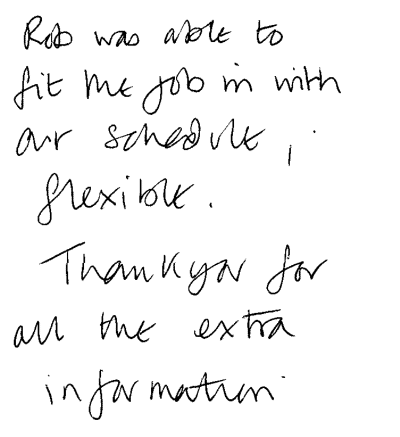 Rob was able to
fit the job in with
our schedule,
flexible.
Thankyou for
all the extra
information